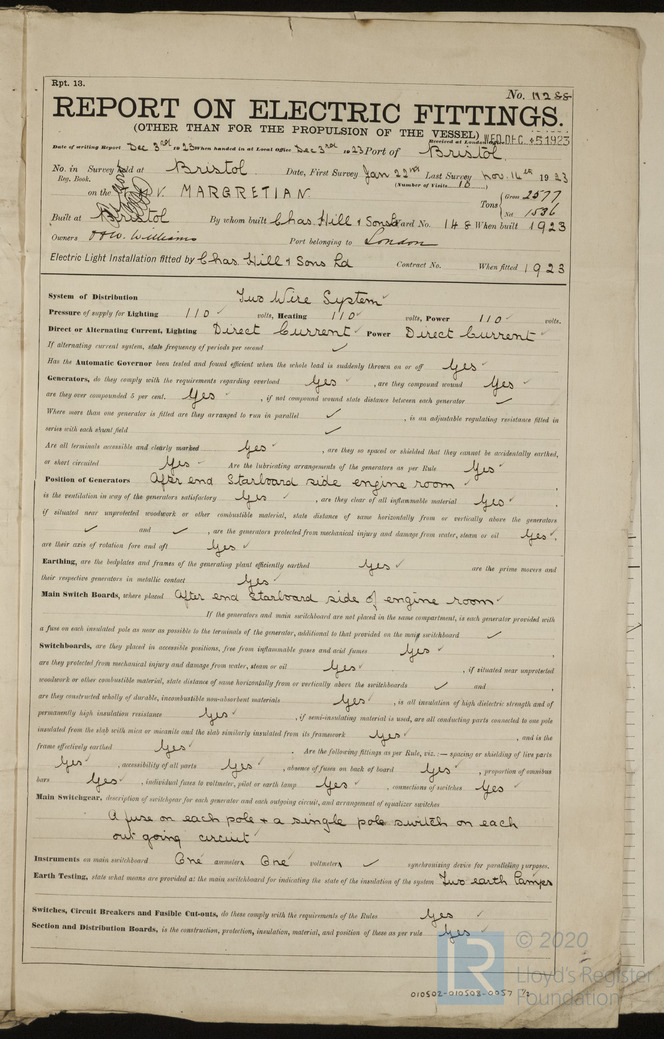 Rpt. 13.
No. 11288
REPORT ON ELECTRIC FITTINGS.
(OTHER THAN FOR THE PROPULSION OF THE VESSEL)
Received at London Office WED. DEC. 5 1923
Date of writing Report Dec 3rd 1923 When handed in at Local Office Dec 3rd 1923 Port of Bristol
No. in Reg. Book. Survey held at Bristol Date, First Survey Jan 22nd Last Survey Nov. 14th 1923
(Number of Visits 10 )
on the V. MARGRETIAN Tons { Gross 2577
Net 1536
Built at Bristol By whom built Chas. Hill & Sons Ld Yard No. 148 When built 1923
Owners O & W. Williams Port belonging to London
Electric Light Installation fitted by Chas Hill & Sons Ld Contract No. When fitted 1923
System of Distribution Two Wire System ✓
Pressure of supply for Lighting 110 ✓ volts, Heating 110 ✓ volts, Power 110 ✓ volts.
Direct or Alternating Current, Lighting Direct Current ✓ Power Direct Current ✓
If alternating current system, state frequency of periods per second ✓
Has the Automatic Governor been tested and found efficient when the whole load is suddenly thrown on or off Yes ✓
Generators, do they comply with the requirements regarding overload Yes ✓ , are they compound wound Yes ✓
are they over compounded 5 per cent. Yes ✓ , if not compound wound state distance between each generator ✓
Where more than one generator is fitted are they arranged to run in parallel ✓ , is an adjustable regulating resistance fitted in
series with each shunt field ✓
Are all terminals accessible and clearly marked Yes ✓ , are they so spaced or shielded that they cannot be accidentally earthed,
or short circuited Yes ✓ Are the lubricating arrangements of the generators as per Rule Yes ✓
Position of Generators After end Starboard side engine room ✓
is the ventilation in way of the generators satisfactory Yes ✓ , are they clear of all inflammable material Yes ✓
if situated near unprotected woodwork or other combustible material, state distance of same horizontally from or vertically above the generators
✓ and ✓ , are the generators protected from mechanical injury and damage from water, steam or oil Yes ✓,
are their axis of rotation fore and aft Yes ✓
Earthing, are the bedplates and frames of the generating plant efficiently earthed Yes ✓ are the prime movers and
their respective generators in metallic contact Yes ✓
Main Switch Boards, where placed After end Starboard side of engine room ✓
If the generators and main switchboard are not placed in the same compartment, is each generator provided with
a fuse on each insulated pole as near as possible to the terminals of the generator, additional to that provided on the main switchboard ✓
Switchboards, are they placed in accessible positions, free from inflammable gases and acid fumes Yes ✓
are they protected from mechanical injury and damage from water, steam or oil Yes ✓ , if situated near unprotected
woodwork or other combustible material, state distance of same horizontally from or vertically above the switchboards ✓ and ,
are they constructed wholly of durable, incombustible non-absorbent materials Yes ✓ , is all insulation of high dielectric strength and of
permanently high insulation resistance Yes ✓ , if semi-insulating material is used, are all conducting parts connected to one pole
insulated from the slab with mica or micanite and the slab similarly insulated from its framework Yes ✓ , and is the
frame effectively earthed Yes ✓ . Are the following fittings as per Rule, viz.:— spacing or shielding of live parts
Yes ✓ , accessibility of all parts Yes ✓ , absence of fuses on back of board Yes ✓ , proportion of omnibus
bars Yes ✓ , individual fuses to voltmeter, pilot or earth lamp Yes ✓ , connections of switches Yes ✓
Main Switchgear, description of switchgear for each generator and each outgoing circuit, and arrangement of equalizer switches
A fuse on each pole & a single pole switch on each
out going circuit ✓
Instruments on main switchboard One ammeters One voltmeters ✓ synchronising device for paralleling purposes.
Earth Testing, state what means are provided at the main switchboard for indicating the state of the insulation of the system Two earth lamps
Switches, Circuit Breakers and Fusible Cut-outs, do these comply with the requirements of the Rules Yes ✓
Section and Distribution Boards, is the construction, protection, insulation, material, and position of these as per rule Yes ✓
© 2020
Lloyd's Register
Foundation
010502-010508-0057 1/2